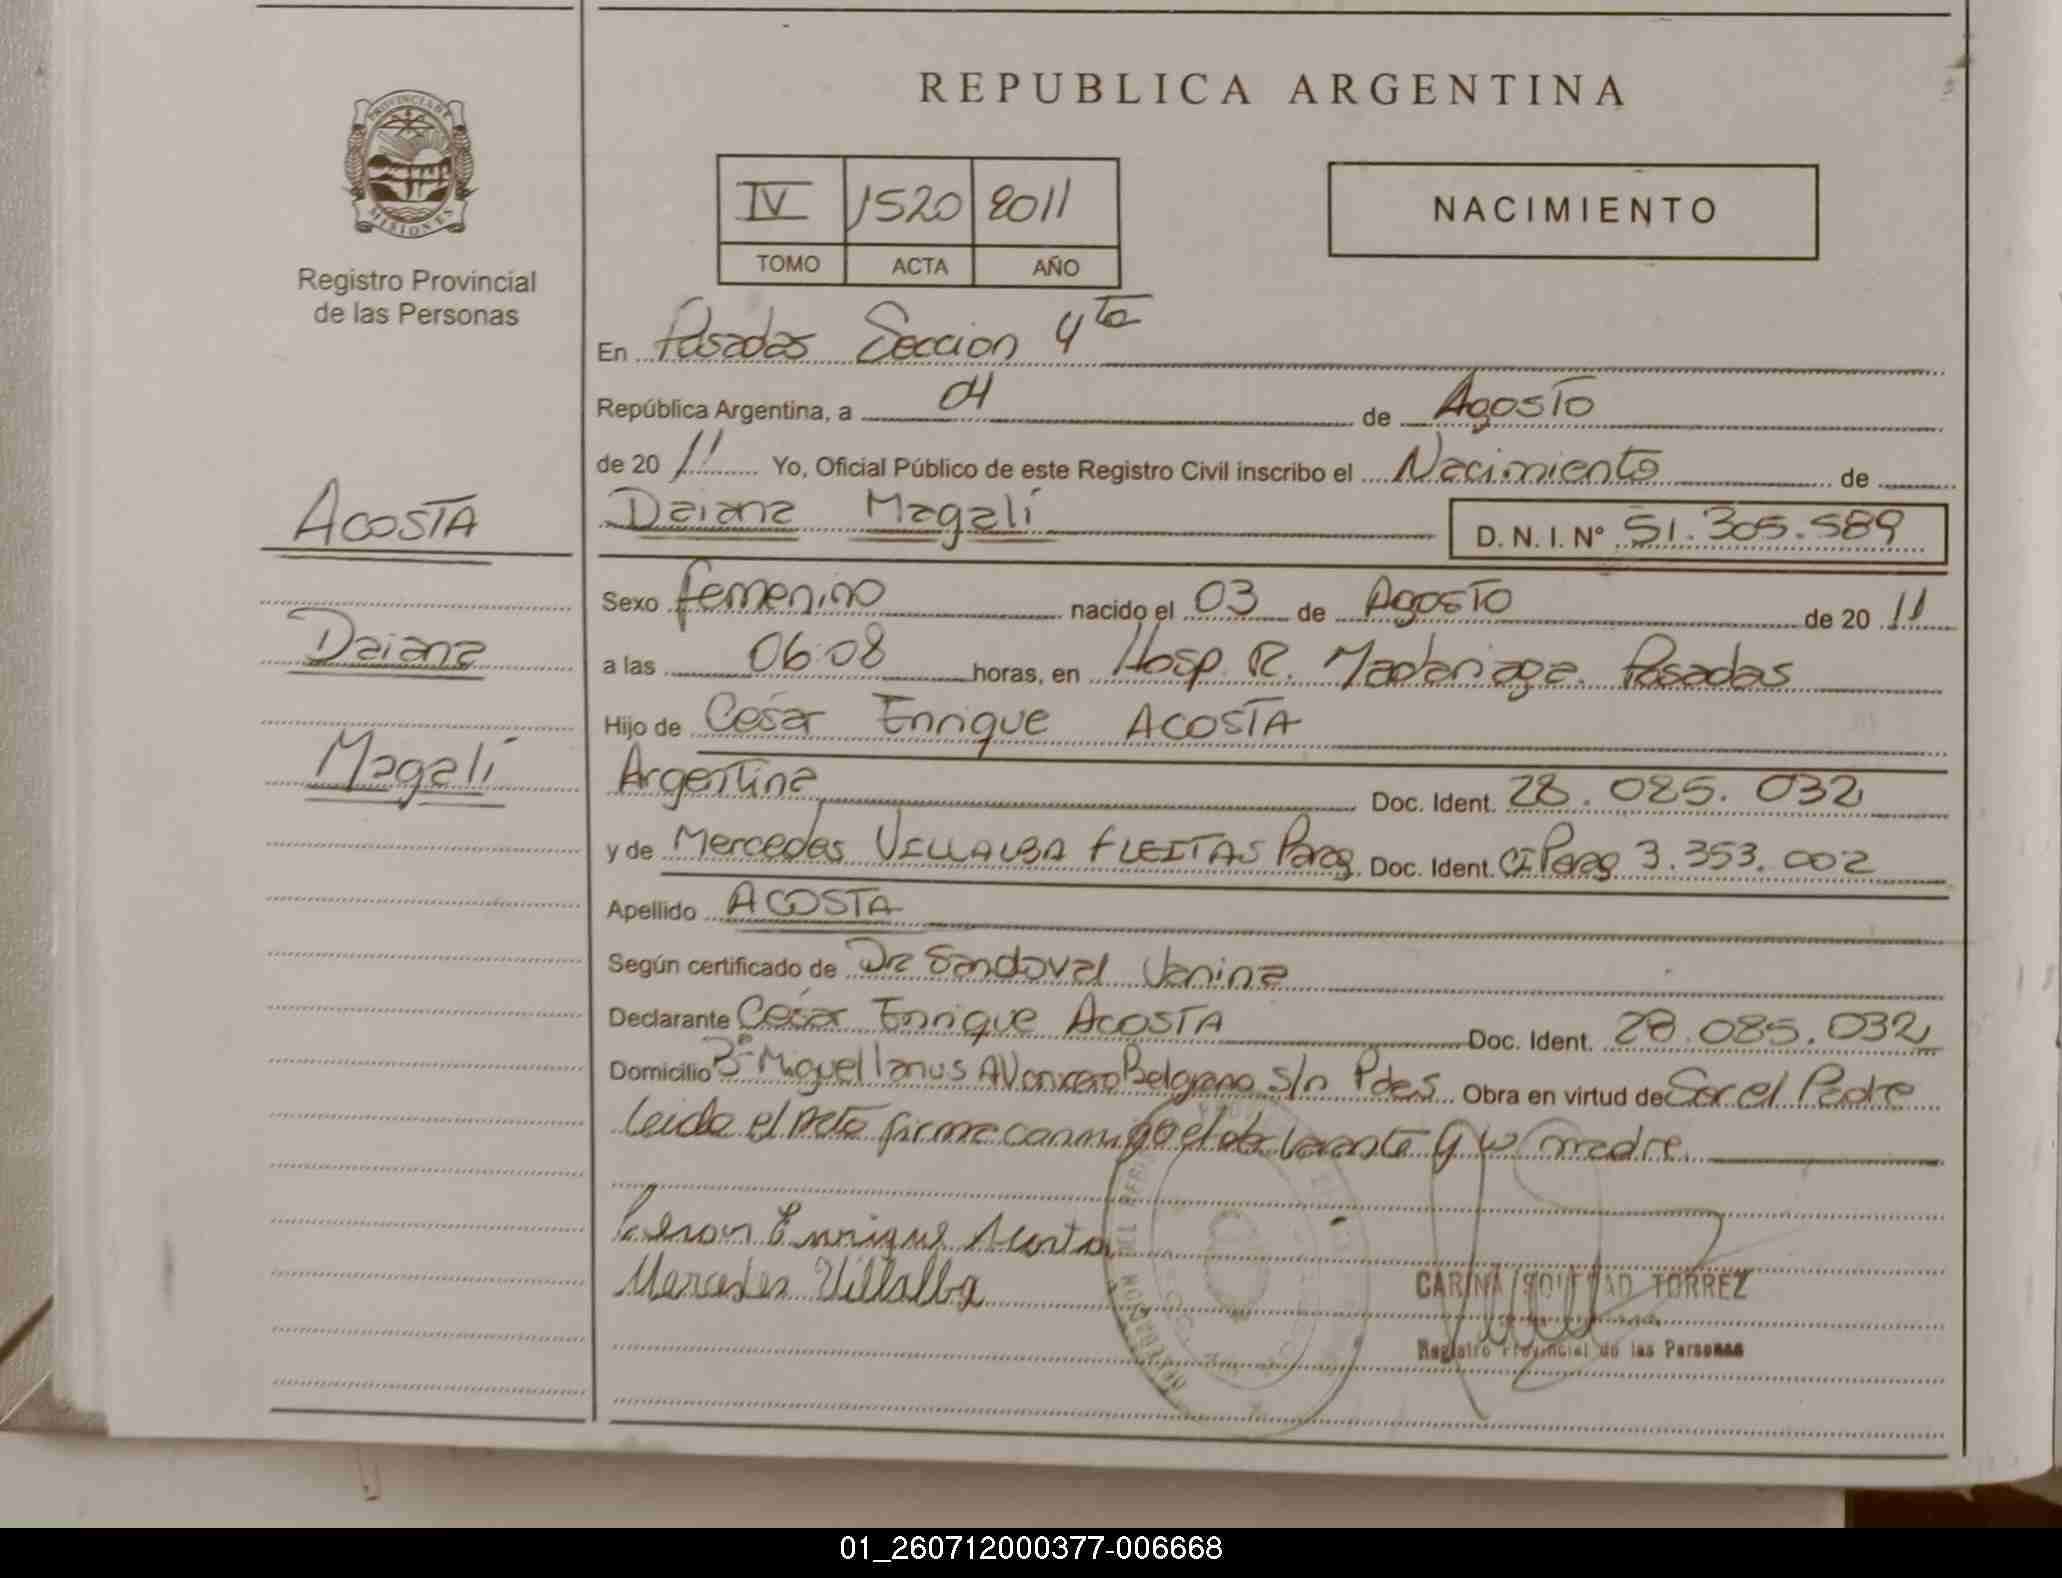 REPUBLICA ARGENTINA
PROVINCIA DE
MISIONES
Registro Provincial
de las Personas
IV 1520 2011
TOMO ACTA AÑO
NACIMIENTO
En Posadas Seccion 4ta
República Argentina, a 04 de Agosto
de 20 11 Yo, Oficial Público de este Registro Civil inscribo el Nacimiento de
ACOSTA
Daiana Magalí D. N. I. Nº 51.305.589
Sexo femenino nacido el 03 de Agosto de 20 11
Daiana
a las 06:08 horas, en Hosp. R. Madariaga. Posadas
Hijo de César Enrique ACOSTA
Magalí
Argentina Doc. Ident. 28.085.032
y de Mercedes VILLALBA FLEITAS Parag. Doc. Ident. CI Parag 3.353.002
Apellido ACOSTA
Según certificado de Dra Sandoval Vanina
Declarante César Enrique ACOSTA Doc. Ident. 28.085.032
Domicilio Bº Miguel Lanus AV Belgrano s/n Pdas. Obra en virtud de Ser el Padre
Leida el Acta firma conmigo el declarante y la madre.
Enrique Acosta
Mercedes Villalba
CARINA SOLEDAD TORREZ
Registro Provincial de las Personas
01_260712000377-006668